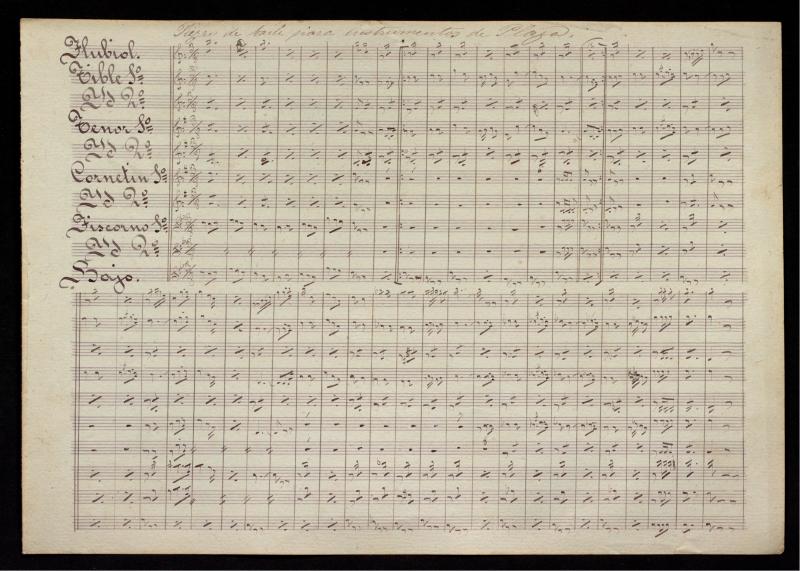 Piezas de baile para instrumentos de Plaza.
Flubiol.
Tible 1º
Yd 2º
Tenor 1º
Yd 2º
Cornetin 1º
Yd 2º
Fiscorno 1º
Yd 2º
Bajo.